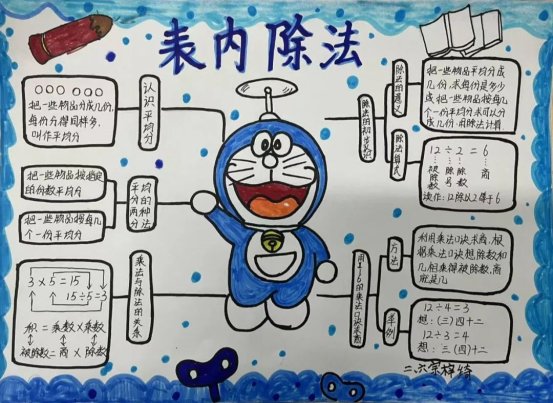 表内除法
认识平均分
把一些物品分成几份,
每份分得同样多,
叫作平均分
平均分的两种分法
把一些物品按指定
的份数平均分
把一些物品按每几
个一份平均分
乘法与除法的关系
3×5=15
15÷5=3
积=乘数×乘数
被除数=商×除数
除法的初步认识
除法的意义
把一些物品平均分成
几份,求每份是多少
或把一些物品按每几
个一份平均分求可以分
成几份,用除法计算
除法算式
12÷2=6
被除数
除号
除数
商
读作:12除以2等于6
方法
利用乘法口诀求商,根
据乘法口诀想除数和
几相乘得被除数,商
就是几
举例
12÷4=3
想:(三)四十二
12÷3=4
想:三(四)十二